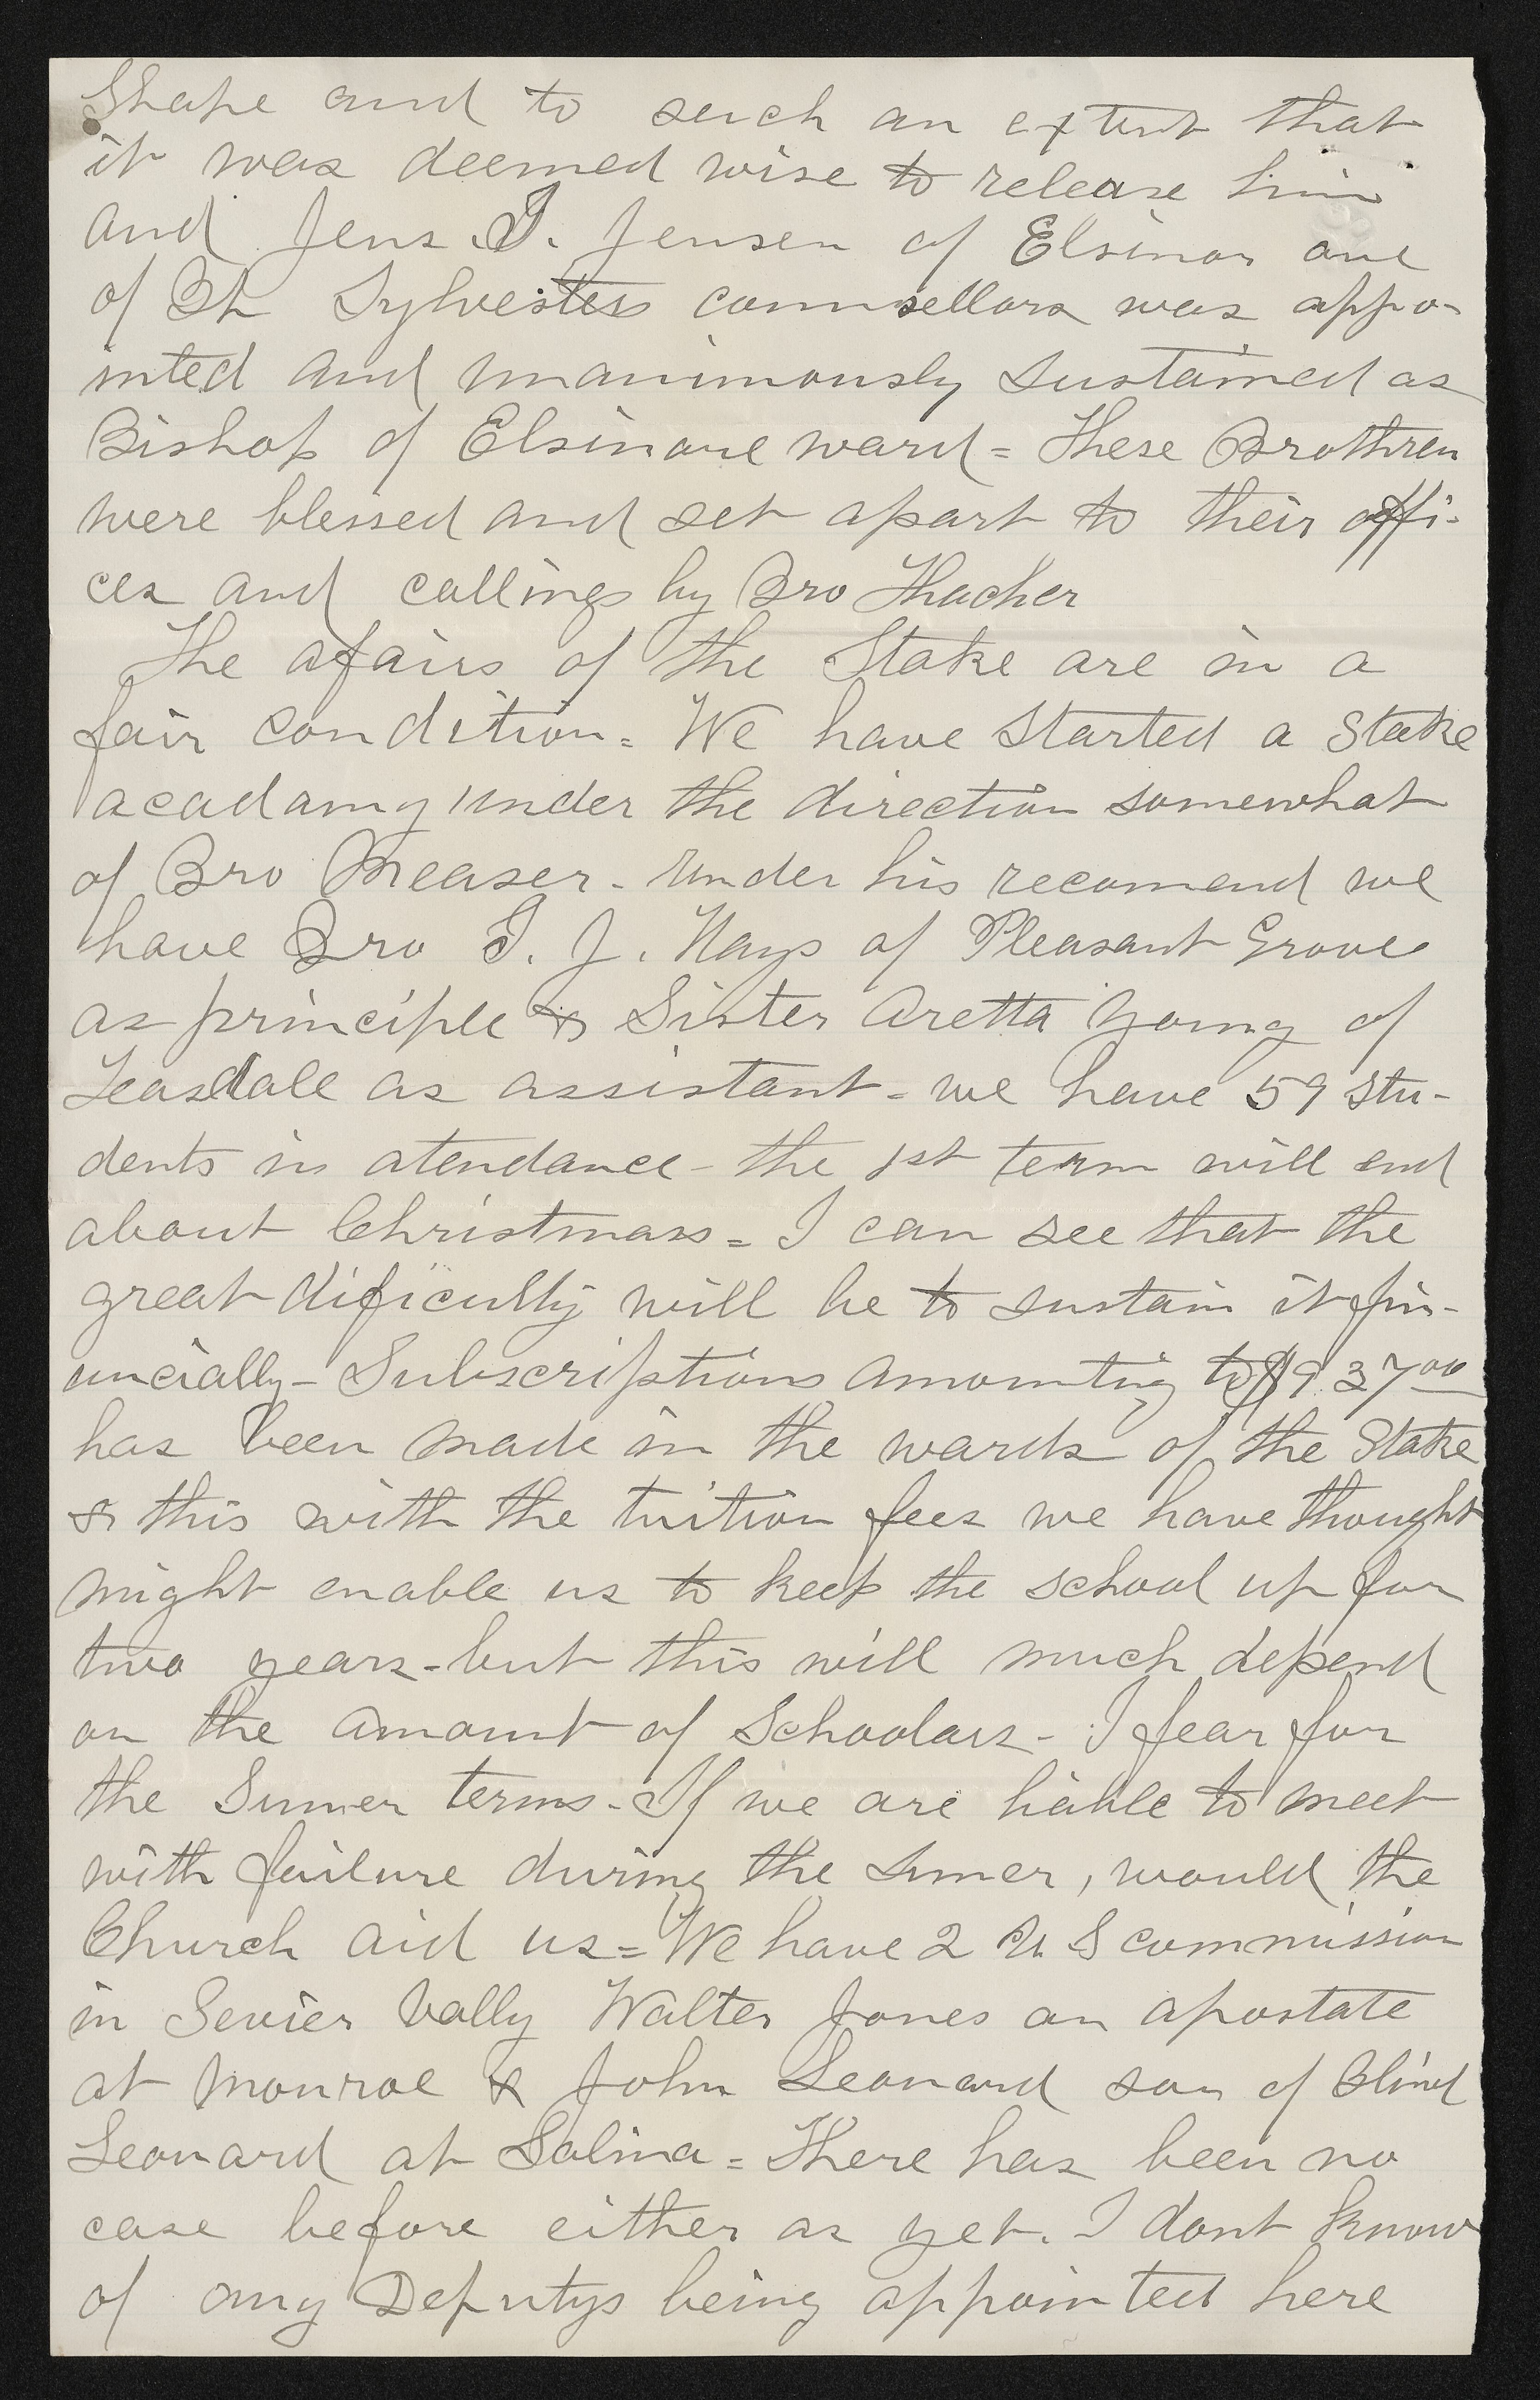 Shape and to such an extent that
it was deemed wise to release him
and Jens I. Jensen of Elsinor one
of Bh Sylvesters counsellors was appo-
inted and unanimously sustained as
Bishop of Elsinore ward = These Brothren
were blessed and set apart to their offi-
ces and callings by Bro Thacher
The afairs of the Stake are in a
fair condition = We have started a Stake
acadamy under the direction somewhat
of Bro Measer - under his recomend we
have Bro I. J. Hays of Pleasant Grove
as principle & Sister Aretta Young of
Teasdale as assistant - we have 59 stu-
dents in atendance - the 1st term will end
about Christmass = I can see that the
great dificulty will be to sustain it fin-
uncially - Subscriptions amounting to $937 00
has been made in the wards of the Stake
& this with the tuition fees we have thought
might enable us to keep the school up for
two years - but this will much depend
on the amount of Schoolars - I fear for
the Sumer terms - If we are liable to meet
with failure during the sumer, would the
Church aid us = We have 2 U S commission
in Sevier Vally Walter Jones an apostate
at Monroe & John Leonard son of Blind
Leonard at Salina = There has been no
case before either as yet. I dont know
of any Deputys being appointed here